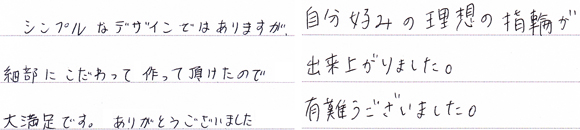 シンプルなデザインではありますが、
細部にこだわって作って頂けたので
大満足です。ありがとうございました
自分好みの理想の指輪が
出来上がりました。
有難うございました。